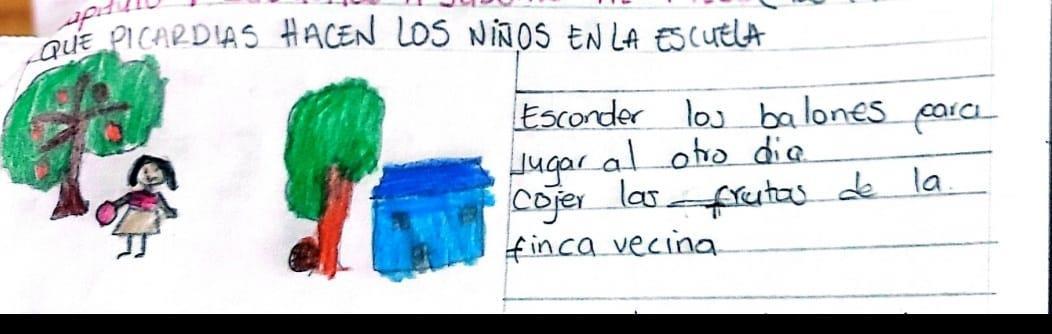 QUE PICARDIAS HACEN LOS NIÑOS EN LA ESCUELA
Esconder los balones para
Jugar al otro dia
cojer las frutas de la
finca vecina